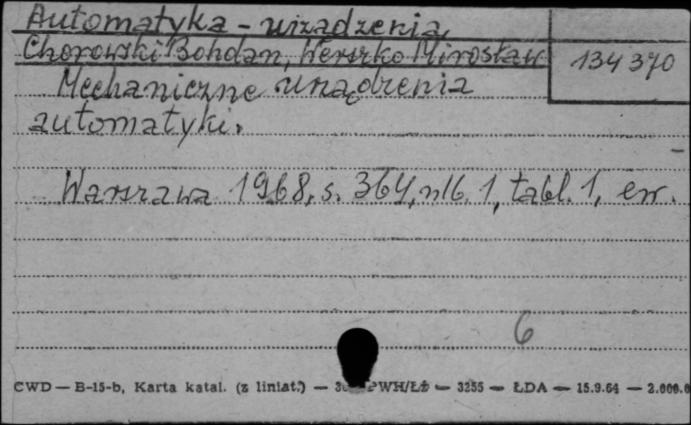 Automatyka - urządzenia
Chorowski Bohdan, Werszko Mirosław
134 370
Mechaniczne urządzenia
automatyki.
Warszawa 1968, s. 364, nlb. 1, tabl. 1, err.
6
CWD — B-15-b, Karta katal. (z liniat.) — PWH/Łż — 3255 — ŁDA — 15.9.64 — 2.000.0